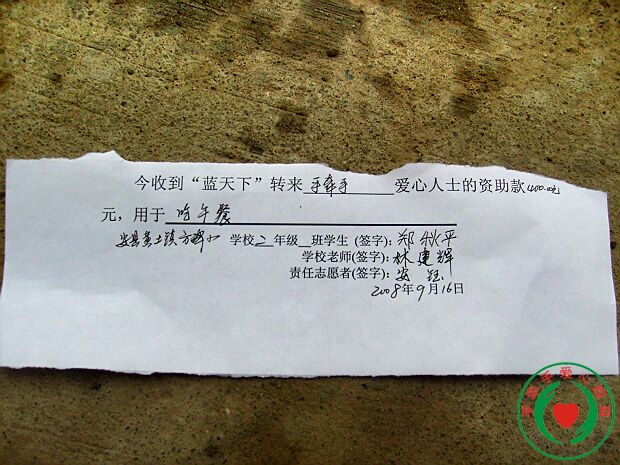 今收到“蓝天下”转来 手牵手 爱心人士的资助款400.00元
元，用于 吃午餐
安县黄土镇方碑小 学校2年级 班学生（签字）：郑秋平
学校老师(签字)：林建辉
责任志愿者(签字)：安钰
2008年9月16日